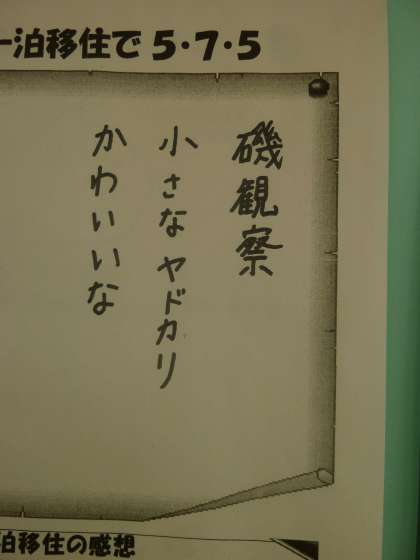 一泊移住で5・7・5
磯観察
小さなヤドカリ
かわいいな
泊移住の感想